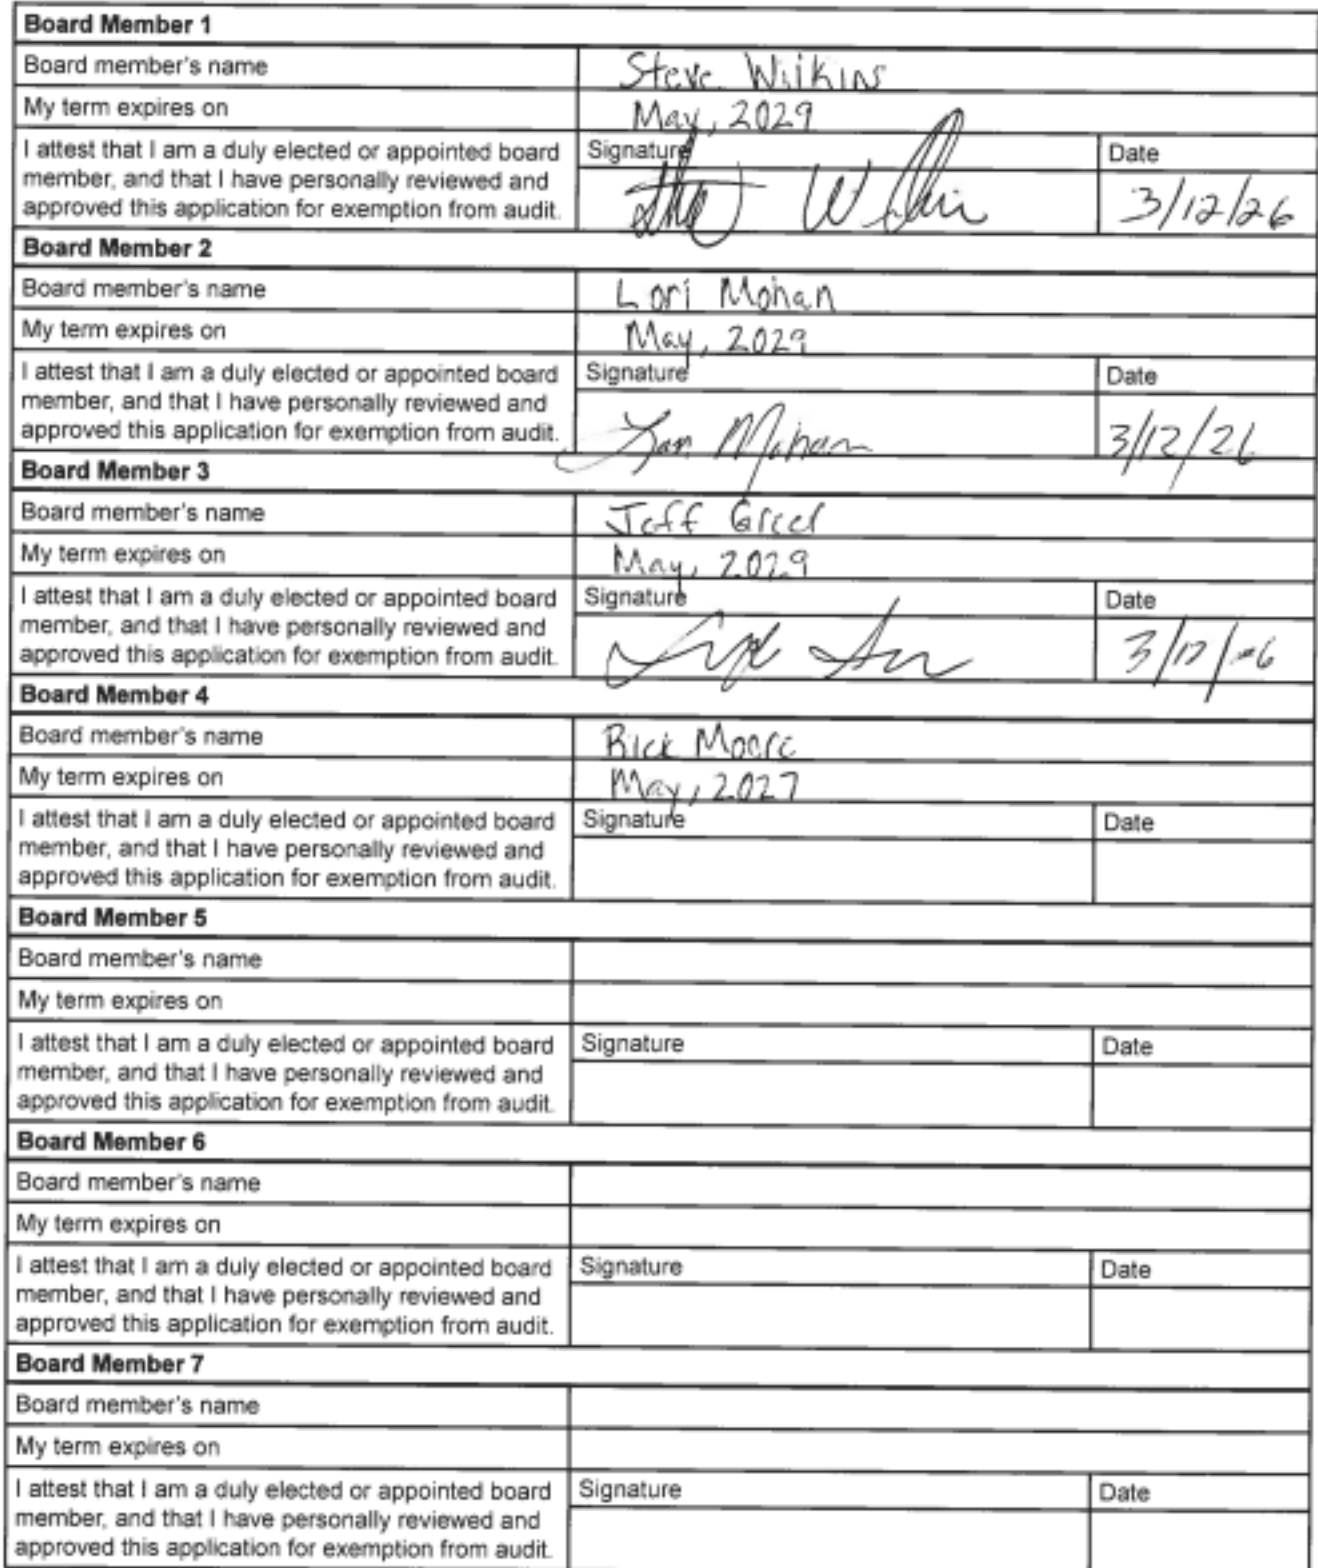 Board Member 1
Board member's name Steve Wilkins
My term expires on May, 2029
I attest that I am a duly elected or appointed board Signature Date
member, and that I have personally reviewed and
approved this application for exemption from audit. 3/12/26
Board Member 2
Board member's name Lori Mohan
My term expires on May, 2029
I attest that I am a duly elected or appointed board Signature Date
member, and that I have personally reviewed and
approved this application for exemption from audit. Lori Mohan 3/12/26
Board Member 3
Board member's name Jeff Greer
My term expires on May, 2029
I attest that I am a duly elected or appointed board Signature Date
member, and that I have personally reviewed and
approved this application for exemption from audit. 3/12/26
Board Member 4
Board member's name Rick Moore
My term expires on May, 2027
I attest that I am a duly elected or appointed board Signature Date
member, and that I have personally reviewed and
approved this application for exemption from audit.
Board Member 5
Board member's name
My term expires on
I attest that I am a duly elected or appointed board Signature Date
member, and that I have personally reviewed and
approved this application for exemption from audit.
Board Member 6
Board member's name
My term expires on
I attest that I am a duly elected or appointed board Signature Date
member, and that I have personally reviewed and
approved this application for exemption from audit.
Board Member 7
Board member's name
My term expires on
I attest that I am a duly elected or appointed board Signature Date
member, and that I have personally reviewed and
approved this application for exemption from audit.